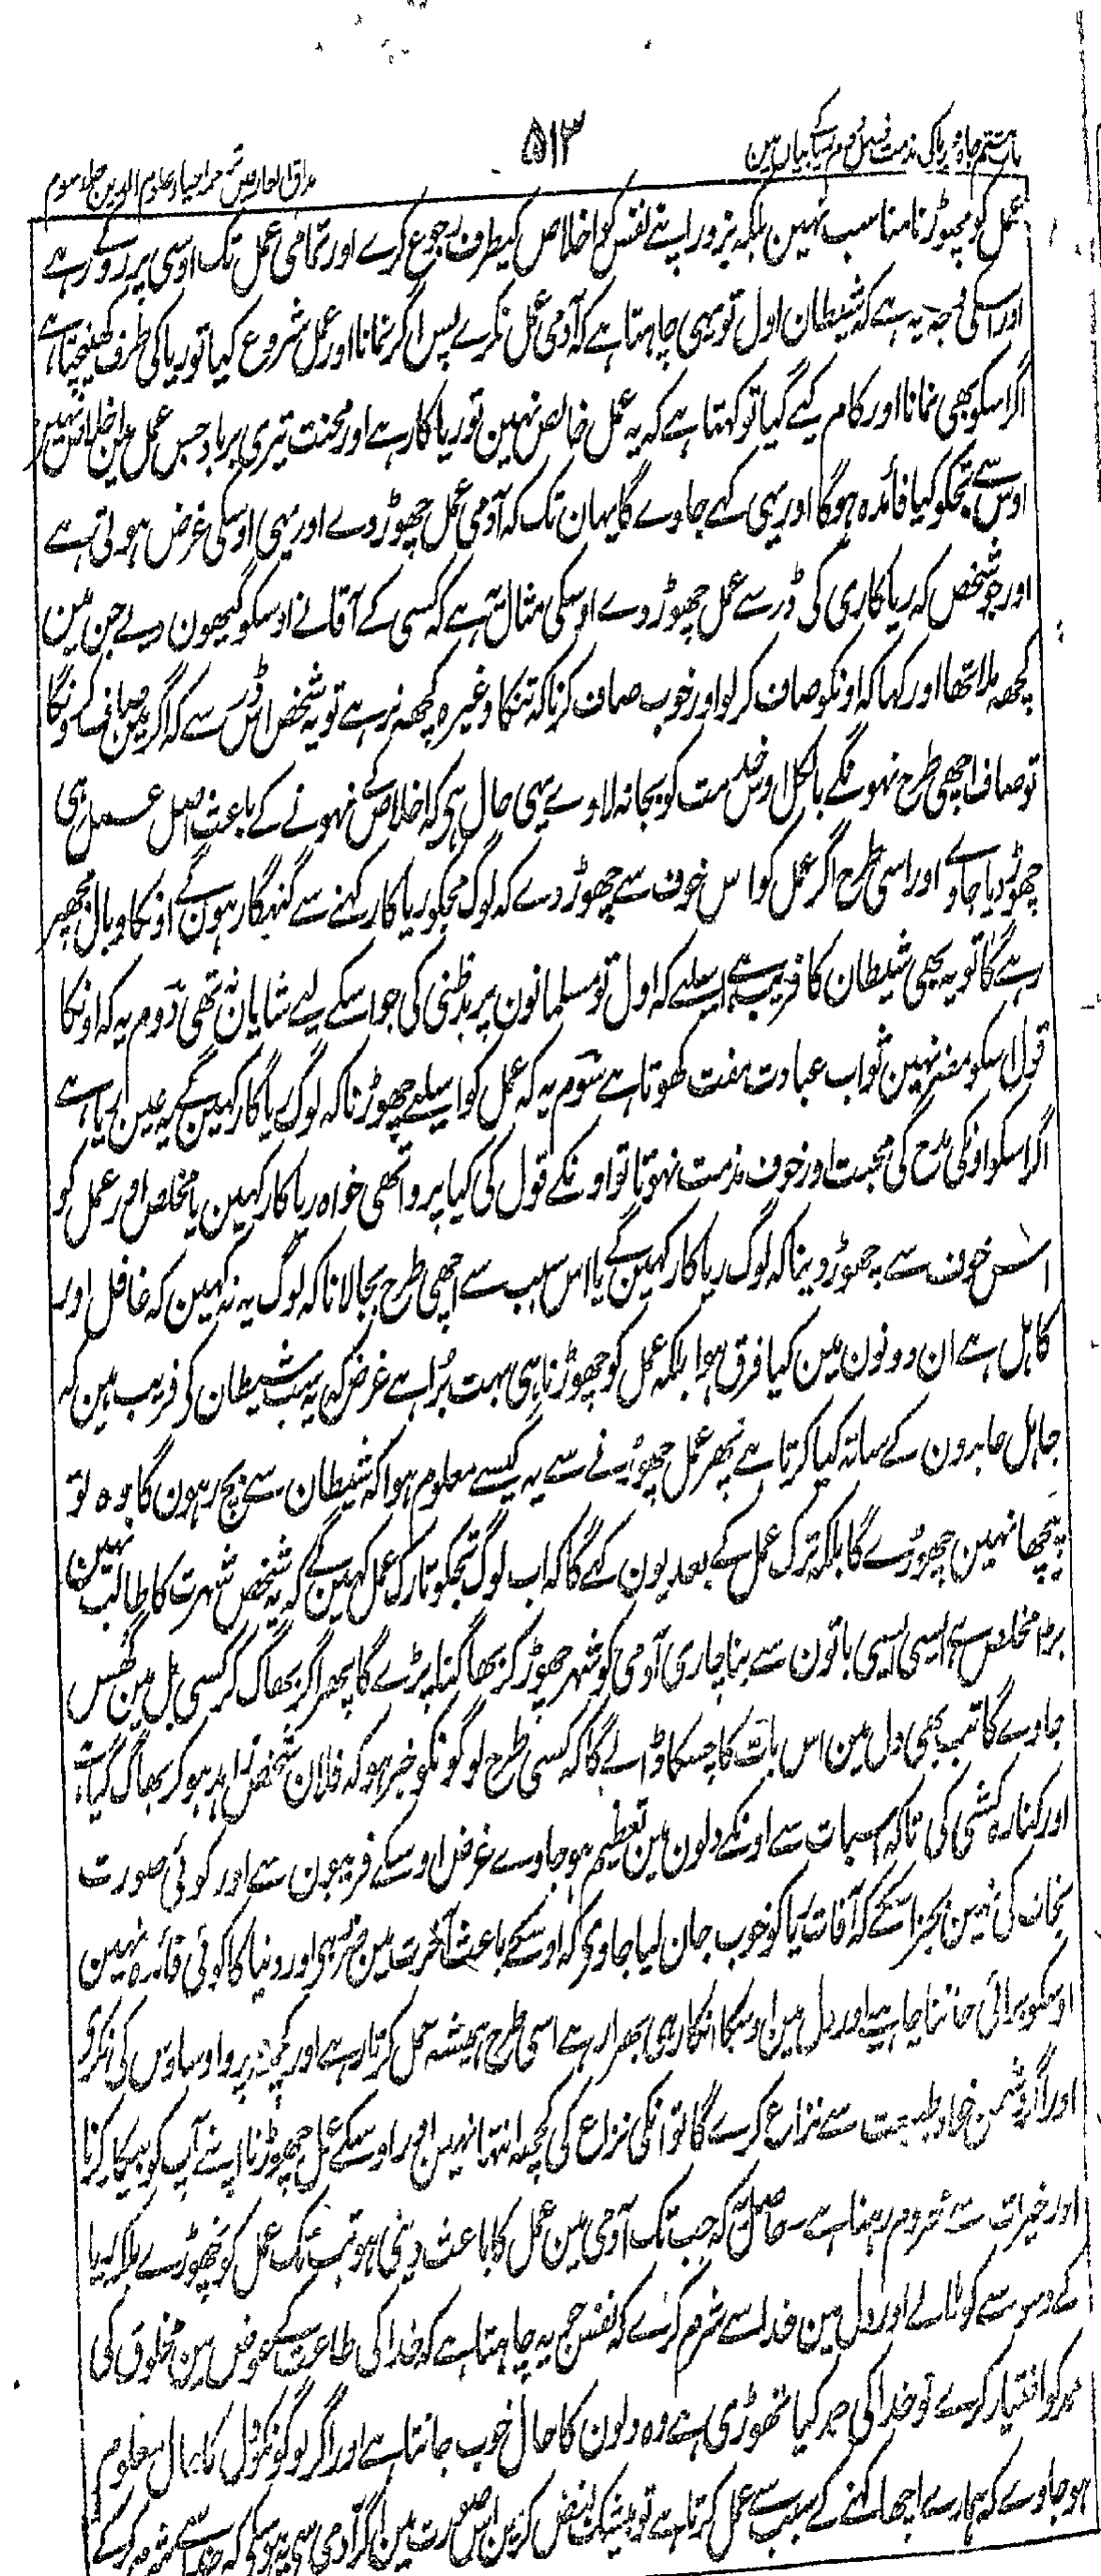 باب ہشتم جاہ و ریا کی مذمت فصل دوم ریا کے بیان مین
۵۱۳
مذاق العارفین ترجمہ احیاء علوم الدین جلد سوم
عمل کو چھوڑنا مناسب نہین بلکہ بزور اپنے نفس کو اخلاص کیطرف رجوع کرے اور تمامی عمل تک اوسی پر روکے رہے
اور اسکی وجہ یہ ہے کہ شیطان اول تو یہی چاہتا ہے کہ آدمی عمل نکرے پس اگر نمانا اور عمل شروع کیا تو ریا کی طرف کھینچتا ہے
اگر اسکو بھی نمانا اور کام کیے گیا تو کہتا ہے کہ یہ عمل خالص نہین تو ریاکار ہے اور محنت تیری برباد جس عمل مین اخلاص نہین
اوس سے تجکو کیا فائدہ ہوگا اور یہی کہے جاوے گا یہان تک کہ آدمی عمل چھوڑ دے اور یہی اوسکی غرض ہوتی ہے
اور جو شخص کہ ریاکاری کی ڈر سے عمل چھوڑ دے اوسکی مثال یہ ہے کہ کسی کے آقا نے اوسکو گیہون دیے جن مین
کچھ ملا تھا اور کہا کہ اونکو صاف کر لو اور خوب صاف کرنا کہ تنکا وغیرہ کچھ نرہے تو یہ شخص اس ڈر سے کہ اگر مین صاف کرونگا
تو صاف اچھی طرح نہونگے بالکل اوس خدمت کو بجا نہ لاوے یہی حال ہی کہ اخلاص کے نہونے کے باعث اصل عمل ہی
چھوڑ دیا جاوے اور اسی طرح اگر عمل کو اس خوف سے چھوڑ دے کہ لوگ مجکو ریاکار کہنے سے گنہگار ہون گے اونکا وبال مجھپر
رہے گا تو یہ بھی شیطان کا فریب ہے اسلیے کہ اول تو مسلمانون پر بدظنی کی جو اسکے لیے شایان نہ تھی دوم یہ کہ اونکا
قول اسکو مضر نہین ثواب عبادت مفت کھوتا ہے سوم یہ کہ عمل کو اسلیے چھوڑنا کہ لوگ ریاکار کہین گے یہ عین ریا ہے
اگر اسکو اونکی مدح کی محبت اور خوف مذمت نہوتا تو اونکے قول کی کیا پروا تھی خواہ ریاکار کہین یا مخلص اور عمل کو
اس خوف سے چھوڑ دینا کہ لوگ ریاکار کہین گے یا اس سبب سے اچھی طرح بجا لانا کہ لوگ یہ نہ کہین کہ غافل اور
کاہل ہے ان دونون مین کیا فرق ہوا بلکہ عمل کو چھوڑنا ہی بہت برا ہے غرض کہ یہ سب شیطان کے فریب ہین کہ
جاہل عابدون کے ساتہ کیا کرتا ہے پھر عمل چھوڑنے سے یہ کیسے معلوم ہوا کہ شیطان سے بچ رہون گا وہ تو
پیچھا نہین چھوڑے گا بلکہ ترک عمل کے بعد یون کہے گا کہ اب لوگ تجکو تارک عمل کہین گے کہ یہ شخص شہرت کا طالب نہین
بڑا مخلص ہے ایسی ایسی باتون سے بناچاری آدمی کو شہر چھوڑ کر بھاگنا پڑے گا پھر اگر بھاگ کر کسی بل مین گھس
جاوے گا تب بھی دل مین اس بات کا چسکا ڈالے گا کہ کسی طرح لوگونکو خبر ہو کہ فلان شخص زاہد ہو کر بھاگ گیا ہے
اور کنارہ کشی کی تاکہ اس بات سے اونکے دلون مین تعظیم ہو جاوے غرض اوسکے فریبون سے اور کوئی صورت
نجات کی نہین بجز اسکے کہ آفات ریا کو خوب جان لیا جاوے کہ اوسکے باعث آخرت مین ضرر ہی اور دنیا کا کوئی فائدہ نہین
اوسکو برائی جاننا چاہیے اور دل مین اوسکا انکار ہی بھرا رہے اسی طرح ہمیشہ عمل کرتا رہے اور کچھ پروا وساوس کی نکرے
اور اگر دشمن خواہ طبیعت سے نزاع کرے گا تو انکی نزاع کی کچھ انتہا نہین اور اوسکے عمل چھوڑنا اپنے آپ کو بیکار کرنا
اور خیرات سے محروم رہنا ہے حاصل یہ کہ جب تک آدمی مین عمل کا باعث دینی ہو تب تک عمل کو نچھوڑے بلکہ ریا
کے وسوسے کو ٹالے اور دل مین خدا سے شرم کرے کہ نفس جو یہ چاہتا ہے کہ خدا کی طاعت کے عوض مین مخلوق کی
حمد کو اختیار کرے تو خدا کی حمد کیا تھوڑی ہے وہ دلون کا حال خوب جانتا ہے اور اگر لوگونکو دل کا حال معلوم
ہو جاوے کہ ہمارے اچھا کہنے کے سبب سے عمل کرتا ہے تو بیشک بغض کرین اس صورت مین اگر آدمی سے یہ ہو سکے کہ خدا سے شرم کرکے